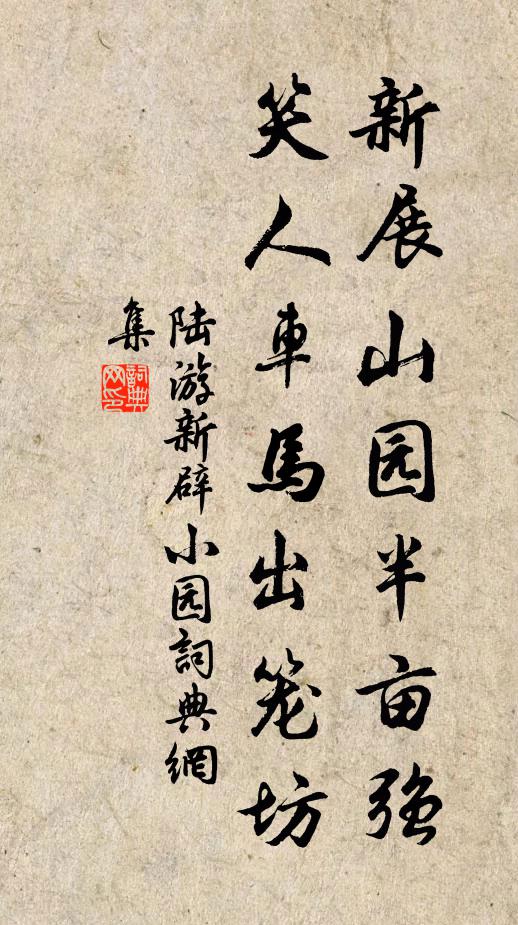 新展山园半亩强
笑人車馬出笼坊
陆游新辟小园詞典網
集
詞典網印